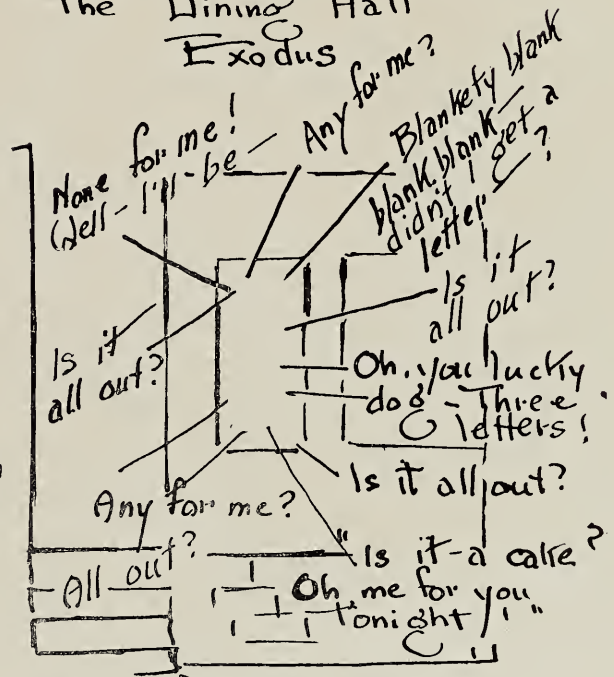 The Dining Hall
Exodus
None for me!
Well - I'll - be -
Any for me?
Blankety blank
blank blank -
didn't I get a
letter?
Is it
all out?
Is it
all out?
Oh, you lucky
dog - Three
letters!
Is it all out?
Any for me?
All out?
"Is it - a cake?
Oh me for you
tonight!"